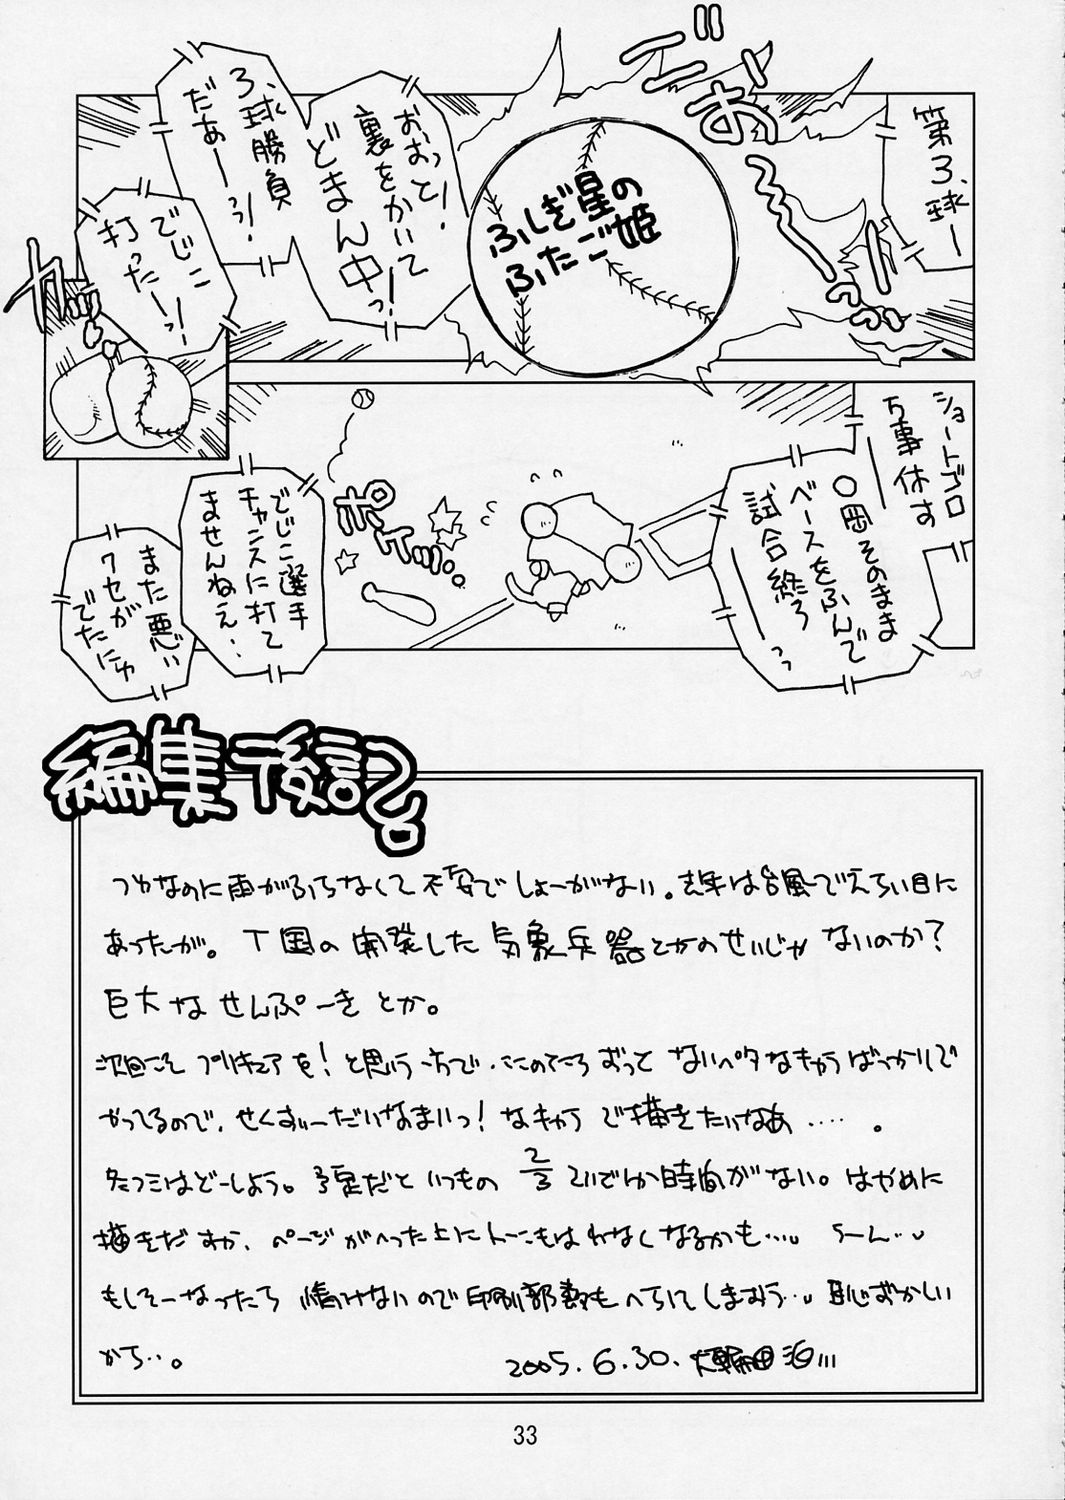 第3球ー
ゴォーーーっっ
ふしぎ星の
ふたご姫
おおっと!
裏をかいて
どまん中っ!
3球勝負
だぁーっっ!
でじこ
打ったーっ!
カッ
ショートゴロ
万事休す
〇岡そのまま
ベースをふんで
試合終了
ーーっっ
ポケッ…
でじこ選手
チャンスに打て
ませんねえ…
また悪い
クセが
でたにゅ
編集後記
つゆなのに雨がふらなくて不安でしょーがない。去年は台風でえらい目に
あったが。T国の開発した気象兵器とかのせいじゃないのか?
巨大なせんぷーきとか。
次回こそプリキュアを!と思う一方で、ここのところずっとないペタなキャラばっかりで
やってるので、せくすぃーだいなまいっ!なキャラで描きたいなあ……。
夕コミはどーしよう。予定だといつもの2/3くらいでか時間がない。はやめに
描きださか、ページがへった上にトーンもはれなくなるかも…。うーん…
もしそーなったら情けないので印刷部数もへらしてしまおう…恥ずかしい
から…。
2005.6.30.大輪田泊
33